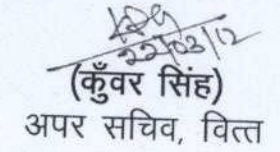 22/03/12
(कुँवर सिंह)
अपर सचिव, वित्त